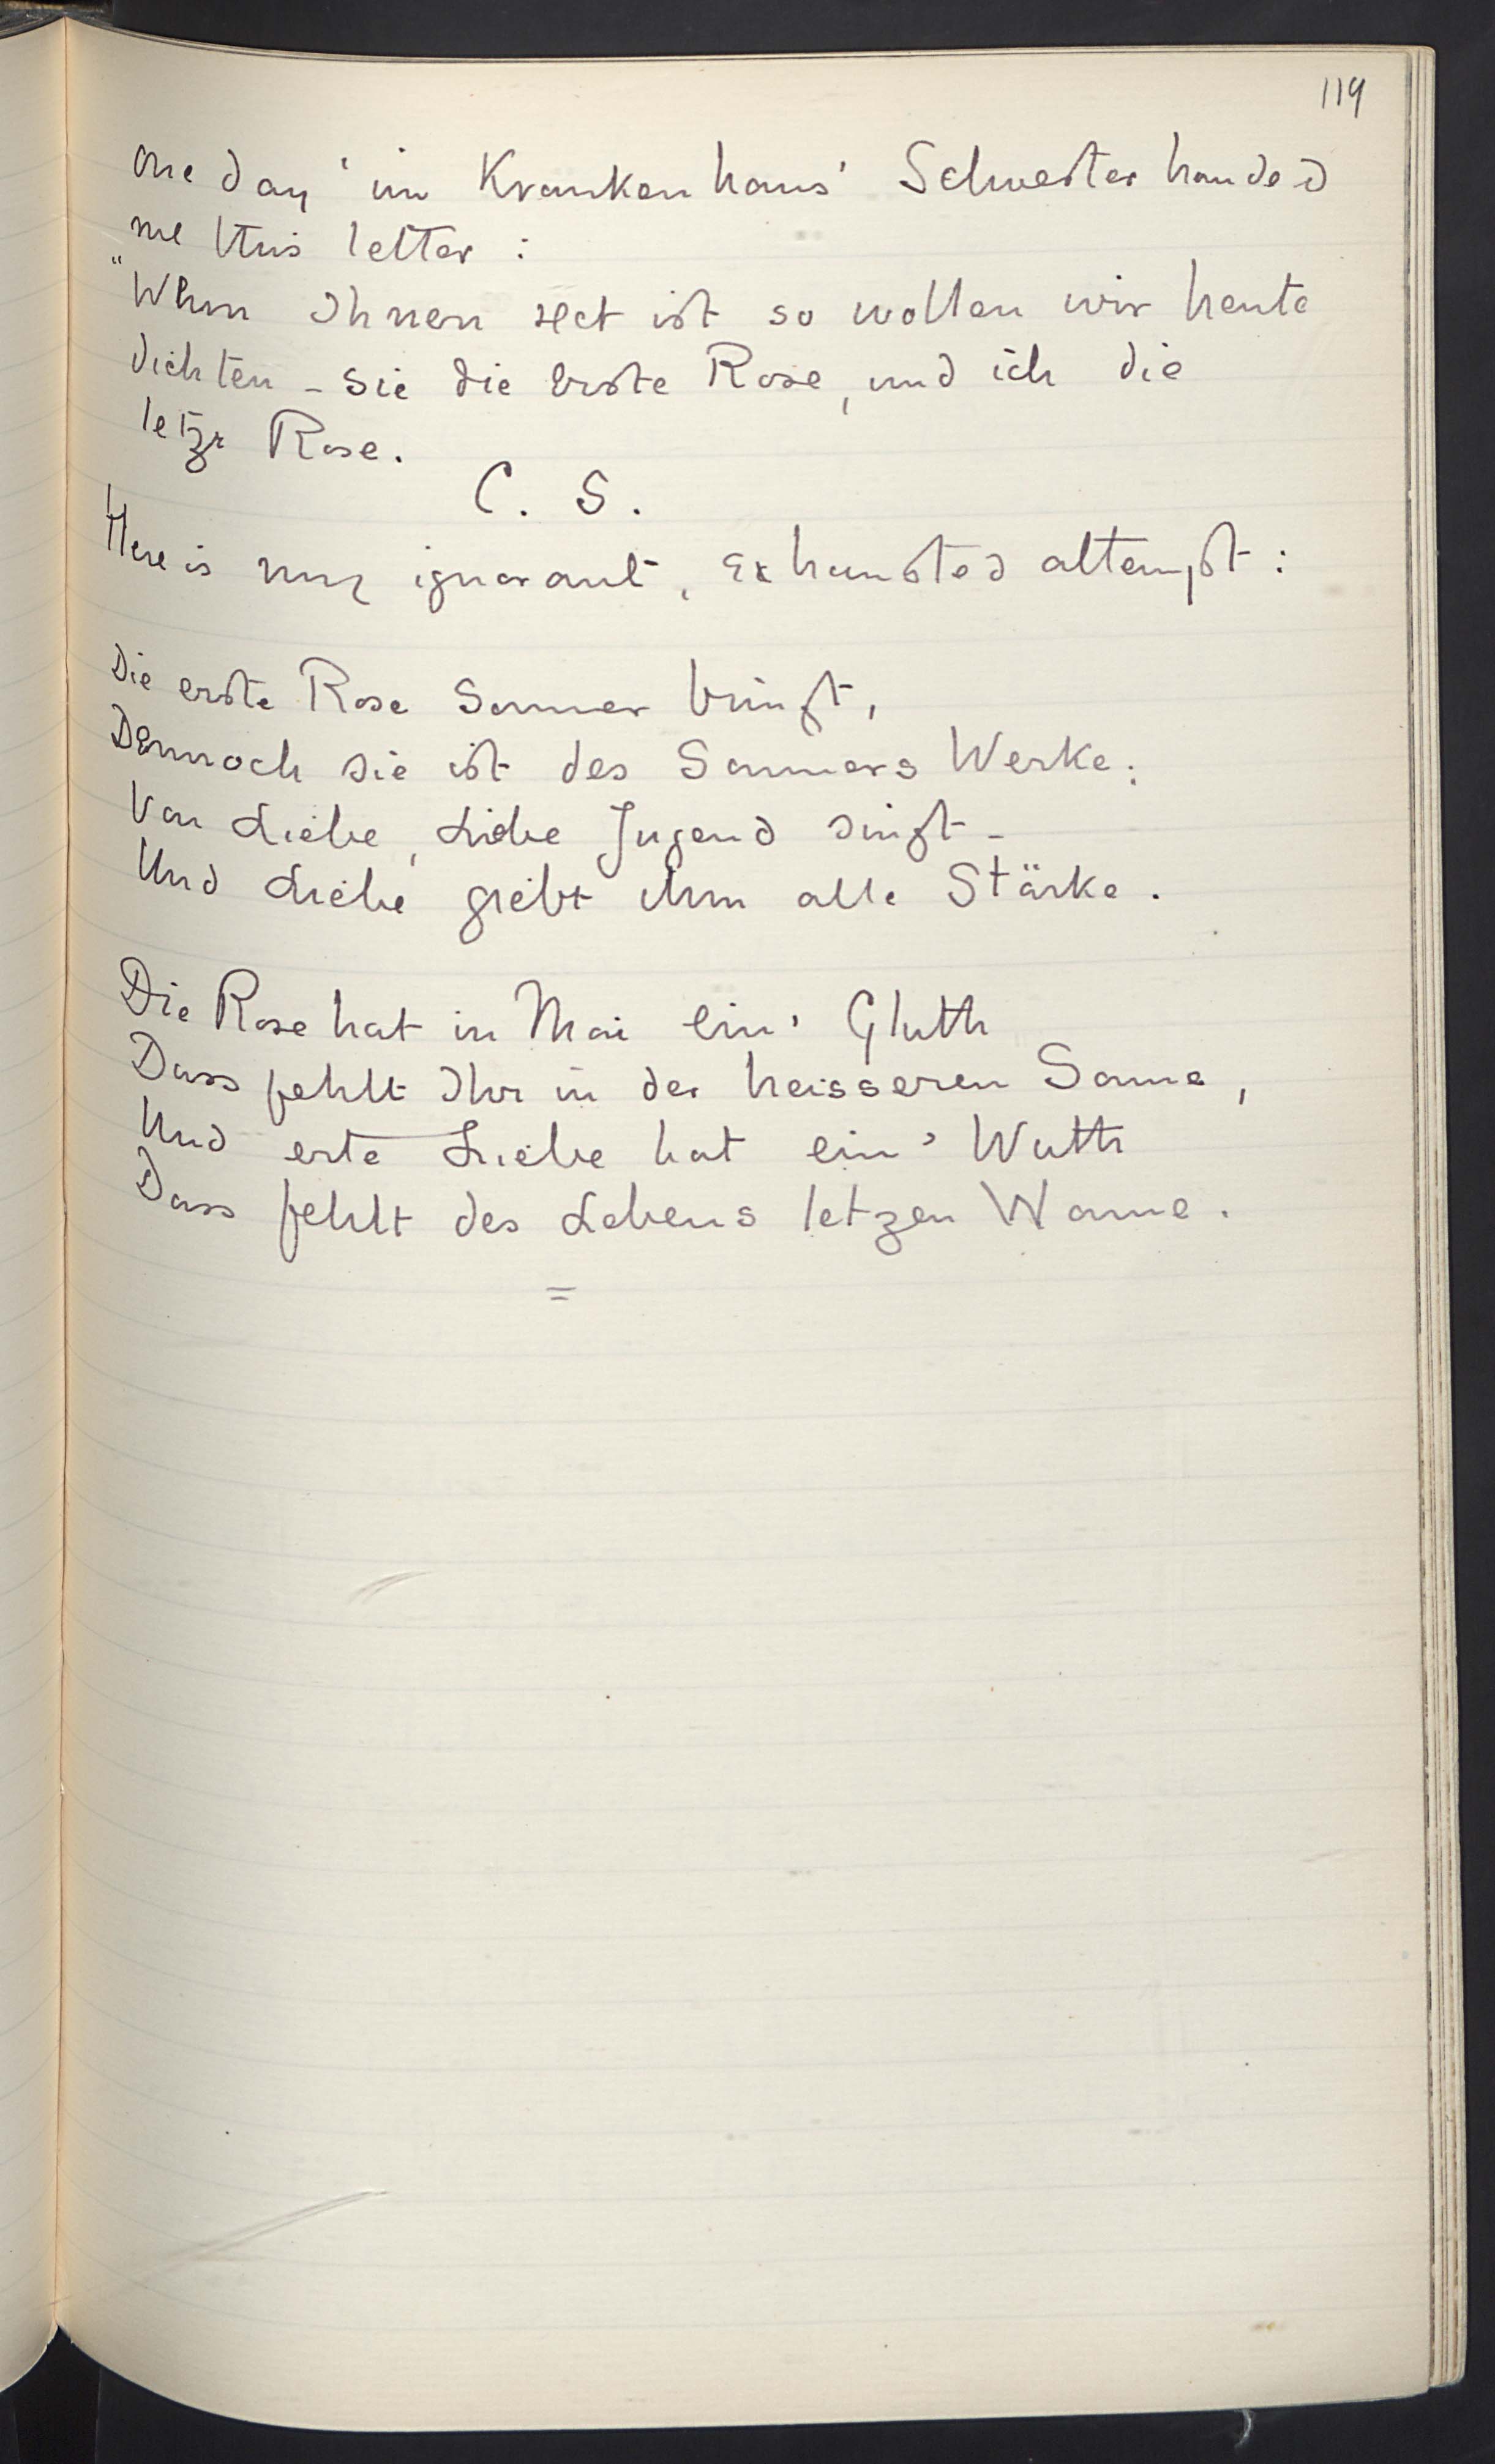 119
One day 'im Krankenhaus' Schwester handed
me this letter :
"Wenn Ihnen recht ist so wollen wir heute
dichten - Sie die erste Rose, und ich die
letze Rose.
C. S.
Here is my ignorant, exhausted attempt :
Die erste Rose Sommer bringt,
Dennoch sie ist des Sommers Werke;
Von Liebe, Liebe Jugend singt -
Und Liebe giebt ihm alle Stärke.
Die Rose hat in Mai ein' Gluth
Dass fehlt Ihr in der heisseren Sonne,
Und erte Liebe hat ein' Wuth
Dass fehlt des Lebens letzen Wonne.
=